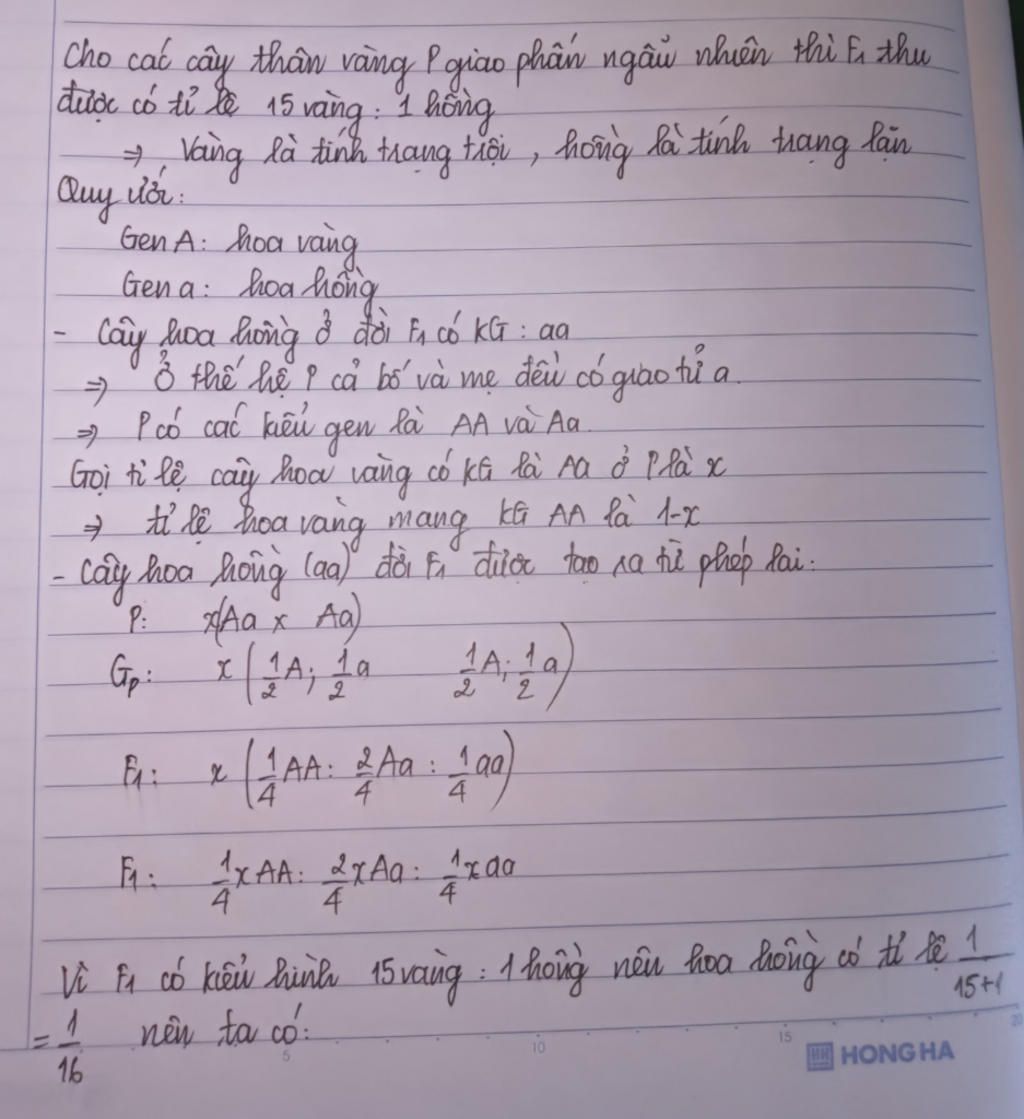 Cho các cây thân vàng P giao phấn ngẫu nhiên thì F₁ thu
được có tỉ lệ 15 vàng : 1 hồng
⇒ Vàng là tính trạng trội, hồng là tính trạng lặn
Quy ước:
Gen A: hoa vàng
Gen a: hoa hồng
- Cây hoa hồng ở đời F₁ có KG: aa
⇒ Ở thế hệ P cả bố và mẹ đều có giao tử a.
⇒ P có các kiểu gen là AA và Aa.
Gọi tỉ lệ cây hoa vàng có KG là Aa ở P là x
⇒ tỉ lệ hoa vàng mang KG AA là 1-x
- Cây hoa hồng (aa) đời F₁ được tạo ra từ phép lai:
P: x(Aa x Aa)
Gₚ: x (1/2 A; 1/2 a 1/2 A; 1/2 a)
F₁: x (1/4 AA : 2/4 Aa : 1/4 aa)
F₁: 1/4 xAA : 2/4 xAa : 1/4 xaa
Vì F₁ có kiểu hình 15 vàng : 1 hồng nên hoa hồng có tỉ lệ 1/(15+1)
= 1/16 nên ta có:
5 10 15 20
HONG HA